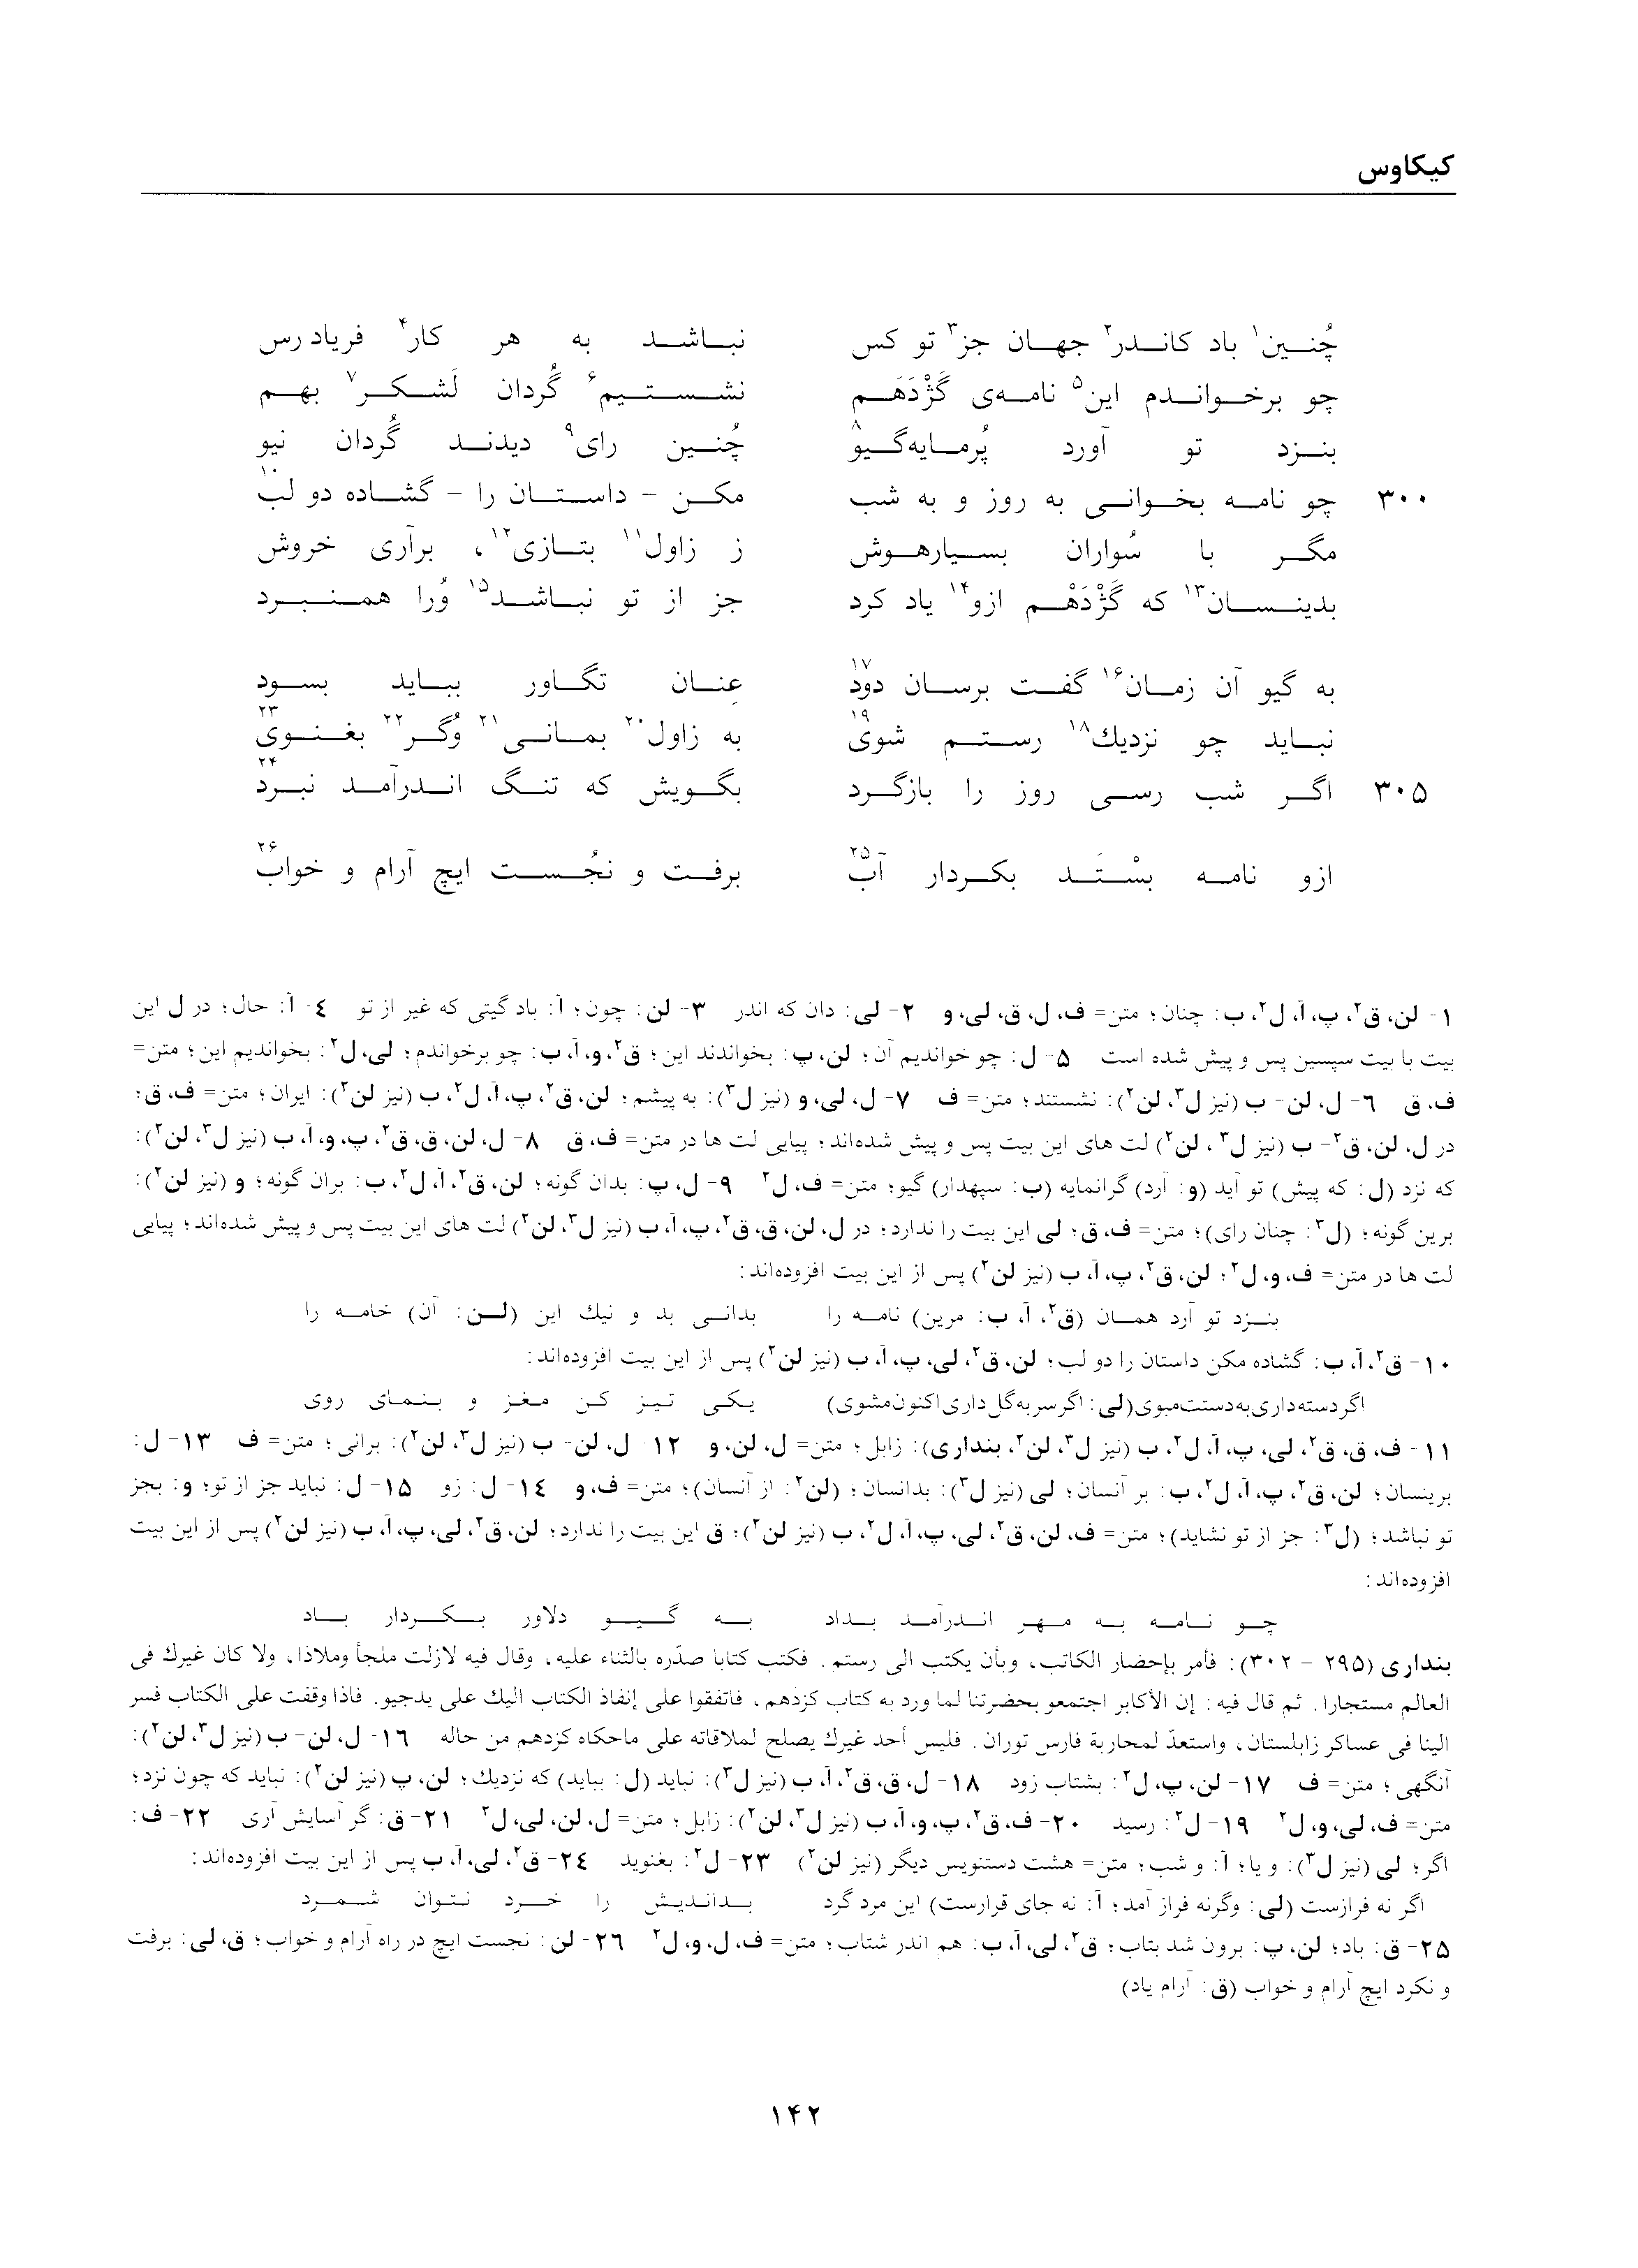 کیکاوس
چُنین۱ باد کاندر۲ جهان جز۳ تو کس نباشد به هر کار۴ فریادرس
چو برخواندم این۵ نامه‌ی گَژْدَهَم نشستیم۶ گُردان لَشکر۷ بهم
بنزد تو آورد پُرمایه‌گیو۸ چُنین رای۹ دیدند گُردان نیو
۳۰۰ چو نامه بخوانی به روز و به شب مکن - داستان را - گشاده دو لب۱۰
مگر با سُواران بسیارهوش ز زاول۱۱ بتازی۱۲، برآری خروش
بدینسان۱۳ که گَژْدَهْم ازو۱۴ یاد کرد جز از تو نباشد۱۵ وُرا همنبرد
به گیو آن زمان۱۶ گفت برسان دود۱۷ عِنان تگاور بباید بسود
نباید چو نزدیك۱۸ رستم شوی۱۹ به زاول۲۰ بمانی۲۱ وُگر۲۲ بغنوی۲۳
۳۰۵ اگر شب رسی روز را بازگرد بگویش که تنگ اندرآمد نبرد۲۴
ازو نامه بسْتَد بکردار آب۲۵ برفت و نجُست ایچ آرام و خواب۲۶
۱- لن، ق۲، پ، آ، ل۲، ب: چنان؛ متن= ف، ل، ق، لی، و ۲- لی: دان که اندر ۳- لن: چون؛ آ: باد گیتی که غیر از تو ٤- آ: حال؛ در ل این
بیت با بیت سپسین پس و پیش شده است ۵- ل: چو خواندیم آن؛ لن، پ: بخواندند این؛ ق۲، و، آ، ب: چو برخواندم؛ لی، ل۲: بخواندیم این؛ متن=
ف، ق ٦- ل، لن- ب (نیز ل۳، لن۲): نشستند؛ متن= ف ۷- ل، لی، و (نیز ل۳): به پیشم؛ لن، ق۲، پ، آ، ل۲، ب (نیز لن۲): ایران؛ متن= ف، ق؛
در ل، لن، ق۲- ب (نیز ل۳، لن۲) لت های این بیت پس و پیش شده‌اند؛ پیاپی لت ها در متن= ف، ق ۸- ل، لن، ق، ق۲، پ، و، آ، ب (نیز ل۳، لن۲):
که نزد (ل: که پیش) تو آید (و: آرد) گرانمایه (ب: سپهدار) گیو؛ متن= ف، ل۲ ۹- ل، پ: بدان گونه؛ لن، ق۲، آ، ل۲، ب: بران گونه؛ و (نیز لن۲):
برین گونه؛ (ل۳: چنان رای)؛ متن= ف، ق؛ لی این بیت را ندارد؛ در ل، لن، ق، ق۲، پ، آ، ب (نیز ل۳، لن۲) لت های این بیت پس و پیش شده‌اند؛ پیاپی
لت ها در متن= ف، و، ل۲؛ لن، ق۲، پ، آ، ب (نیز لن۲) پس از این بیت افزوده‌اند:
بنزد تو آرد همان (ق۲، آ، ب: مرین) نامه را بدانی بد و نیك این (لن: آن) خامه را
۱۰- ق۲، آ، ب: گشاده مکن داستان را دو لب؛ لن، ق۲، لی، پ، آ، ب (نیز لن۲) پس از این بیت افزوده‌اند:
اگر دسته‌داری به دستت مبوی (لی: اگر سر به گل داری اکنون مشوی) یکی تیز کن مغز و بنمای روی
۱۱- ف، ق، ق۲، لی، پ، آ، ل۲، ب (نیز ل۳، لن۲، بنداری): زابل؛ متن= ل، لن، و ۱۲ ل، لن- ب (نیز ل۳، لن۲): برانی؛ متن= ف ۱۳- ل:
برینسان؛ لن، ق۲، پ، آ، ل۲، ب: بر آنسان؛ لی (نیز ل۳): بدانسان؛ (لن۲: از آنسان)؛ متن= ف، و ۱٤- ل: زو ۱۵- ل: نباید جز از تو؛ و: بجز
تو نباشد؛ (ل۳: جز از تو نشاید)؛ متن= ف، لن، ق۲، لی، پ، آ، ل۲، ب (نیز لن۲)؛ ق این بیت را ندارد؛ لن، ق۲، لی، پ، آ، ب (نیز لن۲) پس از این بیت
افزوده‌اند:
چو نامه به مهر اندرآمد بداد به گیو دلاور بکردار باد
بنداری (۲۹۵ - ۳۰۲): فأمر بإحضار الكاتب، وبأن يكتب الى رستم. فكتب كتابا صدّره بالثناء عليه، وقال فيه لازلت ملجأ وملاذا، ولا كان غيرك فى
العالم مستجارا. ثم قال فيه: إن الأكابر اجتمعو بحضرتنا لما ورد به كتاب كزدهم، فاتفقوا على إنفاذ الكتاب اليك على يدجيو. فاذا وقفت على الكتاب فسر
الينا فى عساكر زابلستان، واستعدّ لمحاربة فارس توران. فليس أحد غيرك يصلح لملاقاته على ماحكاه كزدهم من حاله ۱٦- ل، لن- ب (نیز ل۳، لن۲):
آنگهی؛ متن= ف ۱۷- لن، پ، ل۲: بشتاب زود ۱۸- ل، ق، ق۲، آ، ب (نیز ل۳): نباید (ل: بباید) که نزدیك؛ لن، پ (نیز لن۲): نباید که چون نزد؛
متن= ف، لی، و، ل۲ ۱۹- ل۲: رسید ۲۰- ف، ق۲، پ، و، آ، ب (نیز ل۳، لن۲): زابل؛ متن= ل، لن، لی، ل۲ ۲۱- ق: گر آسایش آری ۲۲- ف:
اگر؛ لی (نیز ل۳): و یا؛ آ: و شب؛ متن= هشت دستنویس دیگر (نیز لن۲) ۲۳- ل۲: بغنوید ۲٤- ق۲، لی، آ، ب پس از این بیت افزوده‌اند:
اگر نه فرازست (لی: وگرنه فراز آمد؛ آ: نه جای قرارست) این مرد گرد بداندیش را خرد نتوان شمرد
۲۵- ق: باد؛ لن، پ: برون شد بتاب؛ ق۲، لی، آ، ب: هم اندر شتاب؛ متن= ف، ل، و، ل۲ ۲٦- لن: نجست ایچ در راه آرام و خواب؛ ق، لی: برفت
و نکرد ایچ آرام و خواب (ق: آرام یاد)
۱۴۲